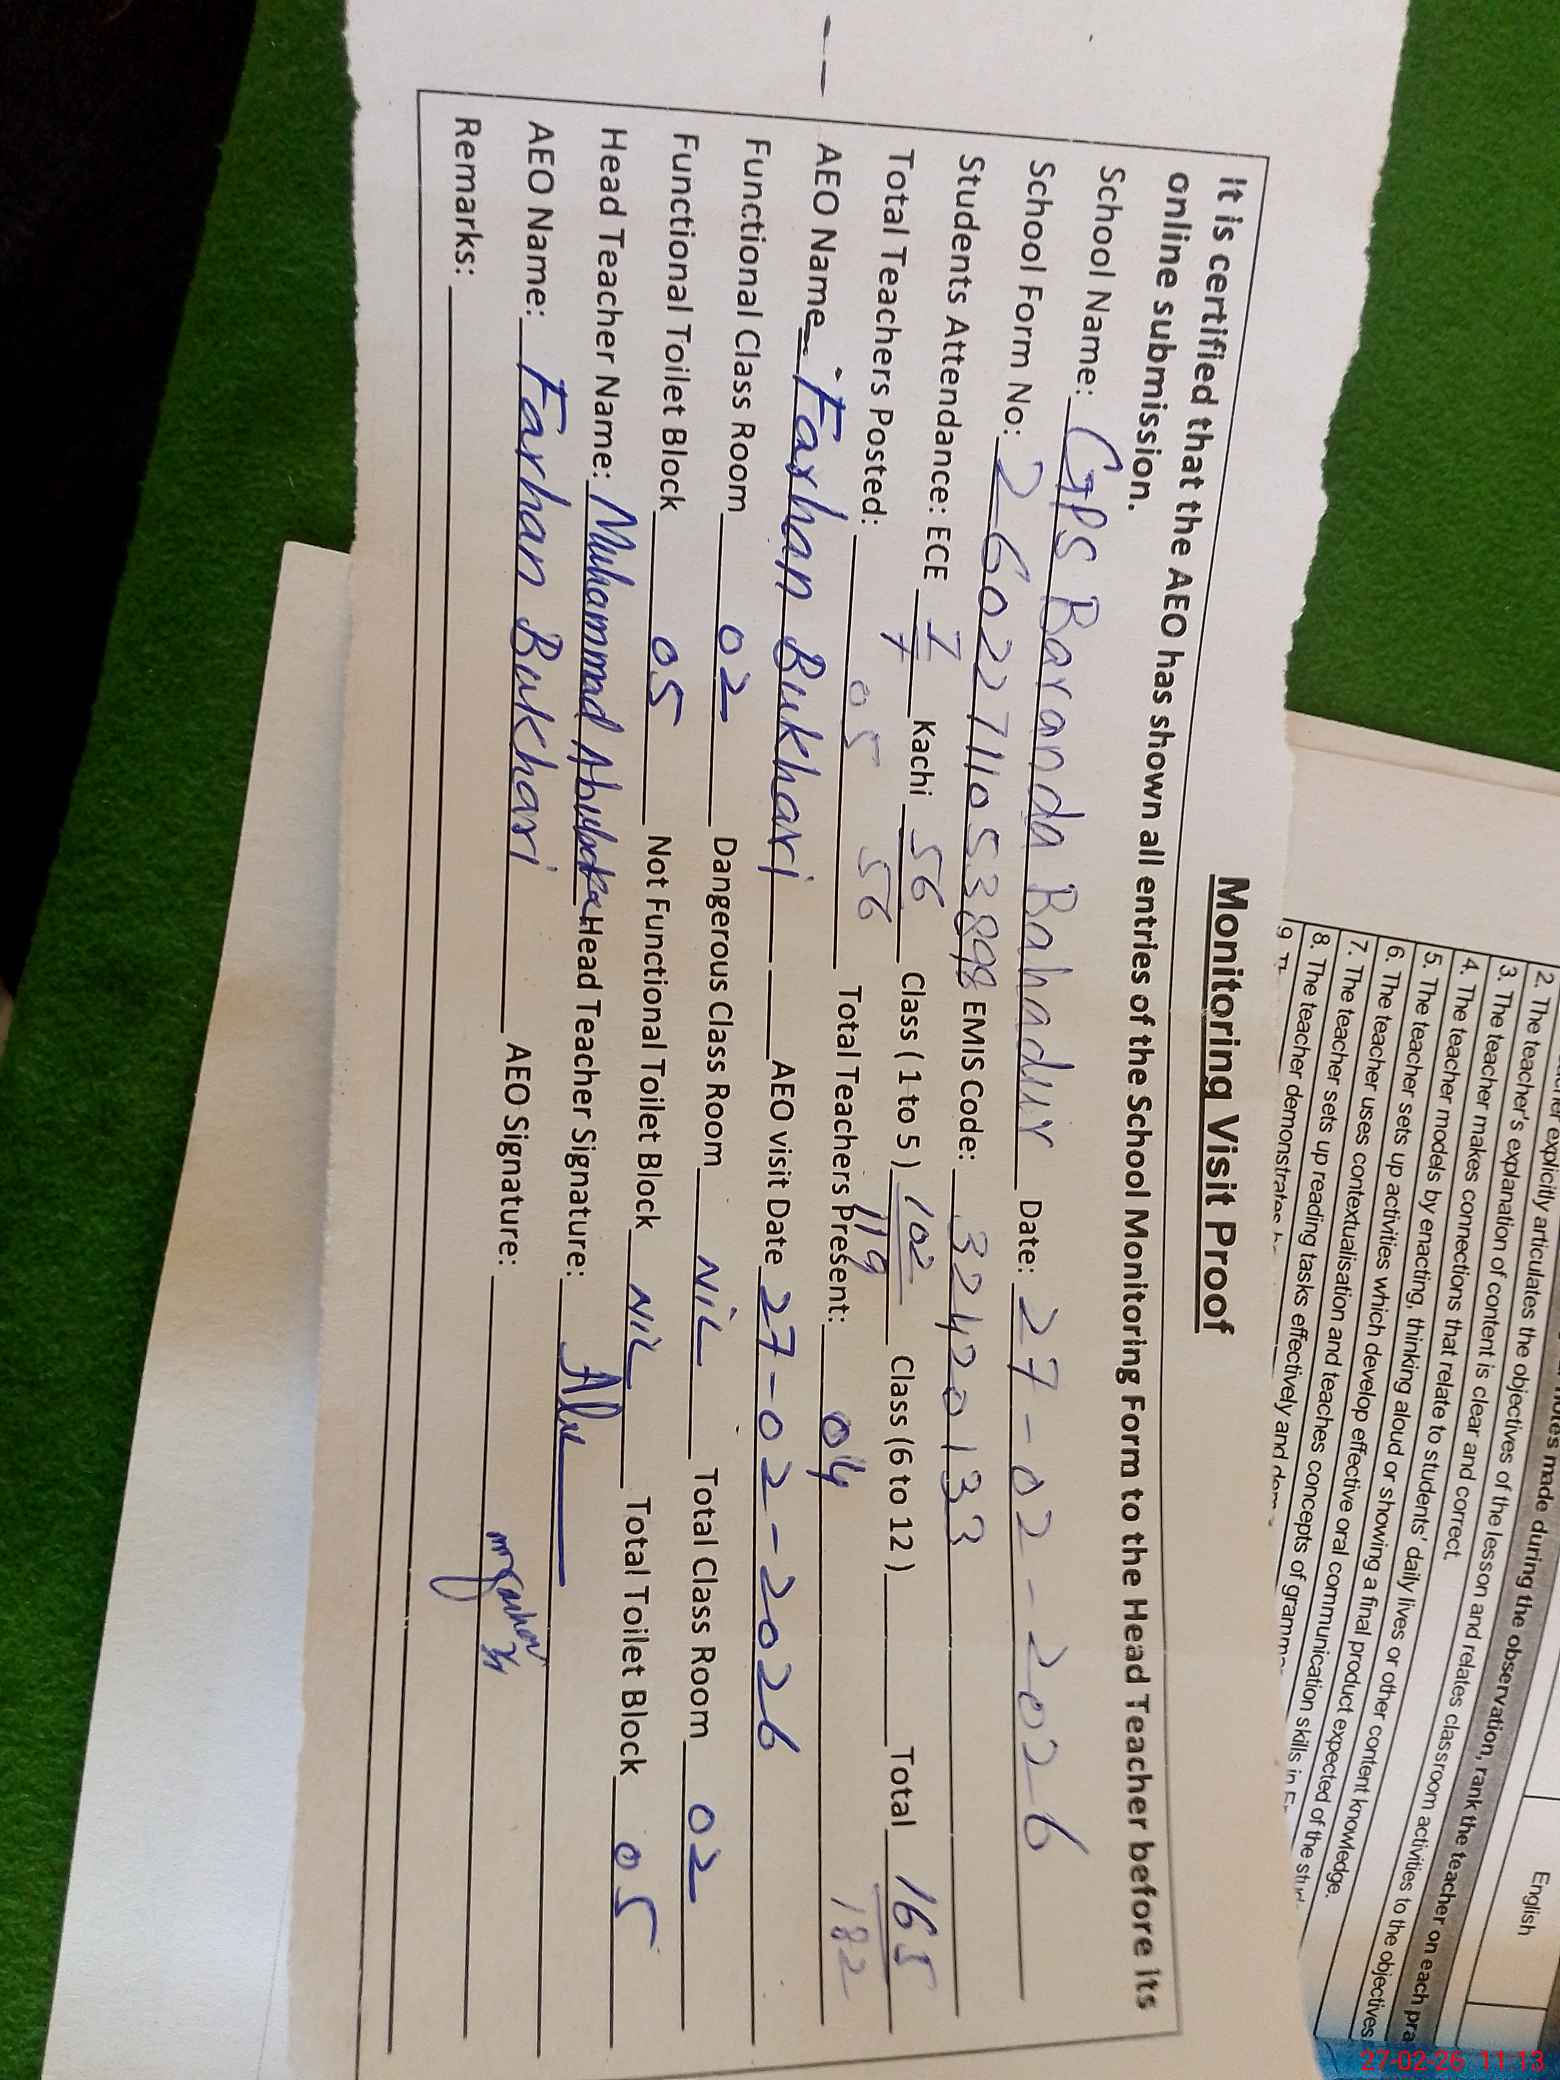 Monitoring Visit Proof
It is certified that the AEO has shown all entries of the School Monitoring Form to the Head Teacher before its
online submission.
School Name: GPS Baranda Bahadur Date: 27-02-2026
School Form No: 2-6022711053898 EMIS Code: 32420133
Students Attendance: ECE 7/7 Kachi 56/56 Class ( 1 to 5 ) 102/119 Class (6 to 12 ) Total 165/182
Total Teachers Posted: 05 Total Teachers Present: 04
AEO Name Farhan Bukhari AEO visit Date 27-02-2026
Functional Class Room 02 Dangerous Class Room NiL Total Class Room 02
Functional Toilet Block 05 Not Functional Toilet Block NiL Total Toilet Block 05
Head Teacher Name: Muhammad Head Teacher Signature:
AEO Name: Farhan Bukhari AEO Signature:
Remarks:
notes made during the observation, rank the teacher on each pra
English
explicitly articulates the objectives of the lesson and relates classroom activities to the objectives
2. The teacher's explanation of content is clear and correct.
3. The teacher makes connections that relate to students' daily lives or other content knowledge.
4. The teacher models by enacting, thinking aloud or showing a final product expected of the
5. The teacher sets up activities which develop effective oral communication skills in
6. The teacher uses contextualisation and teaches concepts of
7. The teacher sets up reading tasks effectively and
8. The teacher demonstrates
27-02-26 11:13